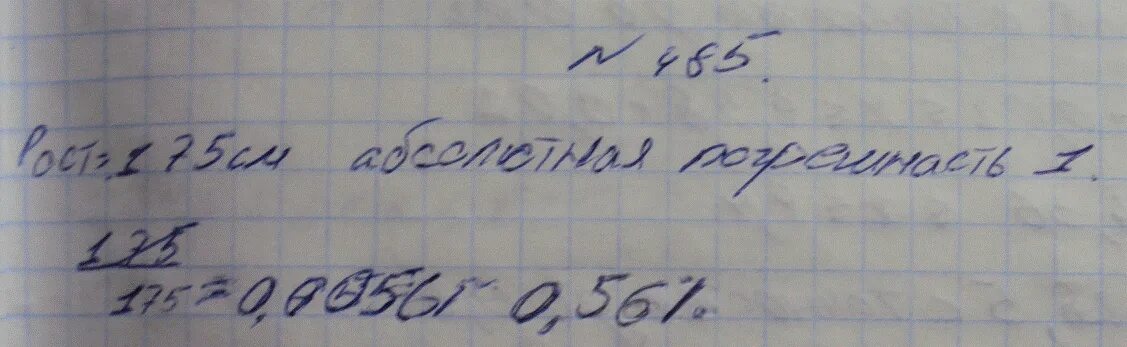 № 485.
Рост=175см абсолютная погрешнасть 1.
175
175=0,00561- 0,56%.